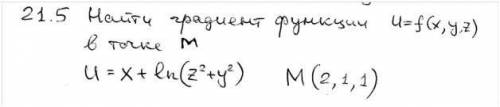 21.5 Найти градиент функции u=f(x,y,z)
в точке M
u = x + ln(z²+y²) M(2,1,1)